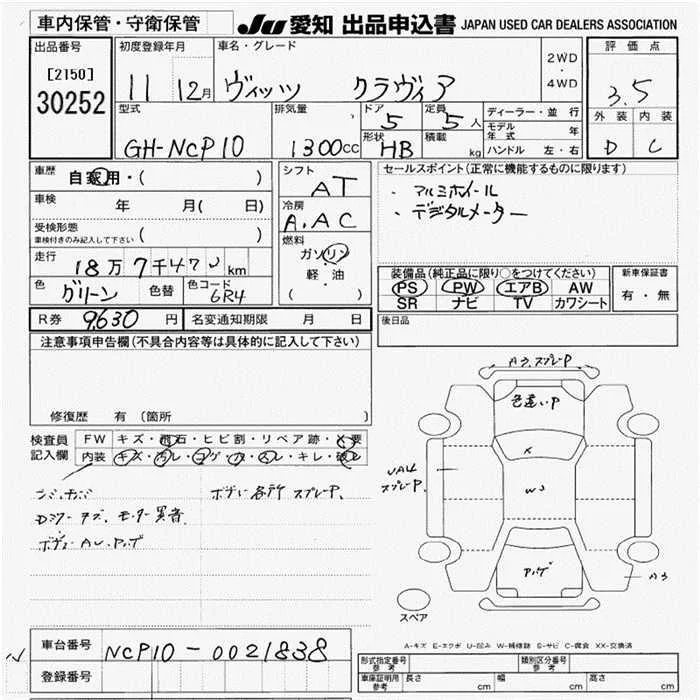 車内保管・守衛保管
JU 愛知 出品申込書 JAPAN USED CAR DEALERS ASSOCIATION
出品番号
[2150]
30252
初度登録年月
11 12月
車名・グレード
ヴィッツ クラヴィア
2WD
・
4WD
評価点
3.5
外装 内装
D C
型式
GH-NCP10
排気量
1300cc
ドア
5
定員
5人
形状
HB
積載
kg
ディーラー・並行
モデル年式 年
ハンドル 左・右
車歴
自家用・( )
車検 年 月( 日)
受検形態
車検付きのみ記入して下さい ( )
走行
18万7千47 km
色
グリーン
色替
色コード
6R4
シフト
AT
冷房
A.AC
燃料
ガソリン
・
軽・油
( )
セールスポイント(正常に機能するものに限ります)
・アルミホイール
・デジタルメーター
装備品(純正品に限り○をつけてください)
PS PW エアB AW
SR ナビ TV カワシート
新車保証書
有・無
R券 9,630円 名変通知期限 月 日
後日品
注意事項申告欄(不具合内容等は具体的に記入して下さい)
修復歴 有(箇所 )
検査員
記入欄
FW キズ・飛石・ヒビ割・リペア跡・X要
内装 キズ・汚レ・コゲ・穴・スレ・キレ・破レ
ボデー各所スプレーP.
モーター異音
A3.スプレーP
色違いP
X
W3
UA4
スプレーP.
A3
スペア
A-キズ E-エクボ U-凹み W-補修跡 S-サビ C-腐食 XX-交換済
車台番号 NCP10-0021838
登録番号
型式指定番号 参考
類別区分番号 参考
車庫証明用 参考 長さ cm 幅 cm 高さ cm